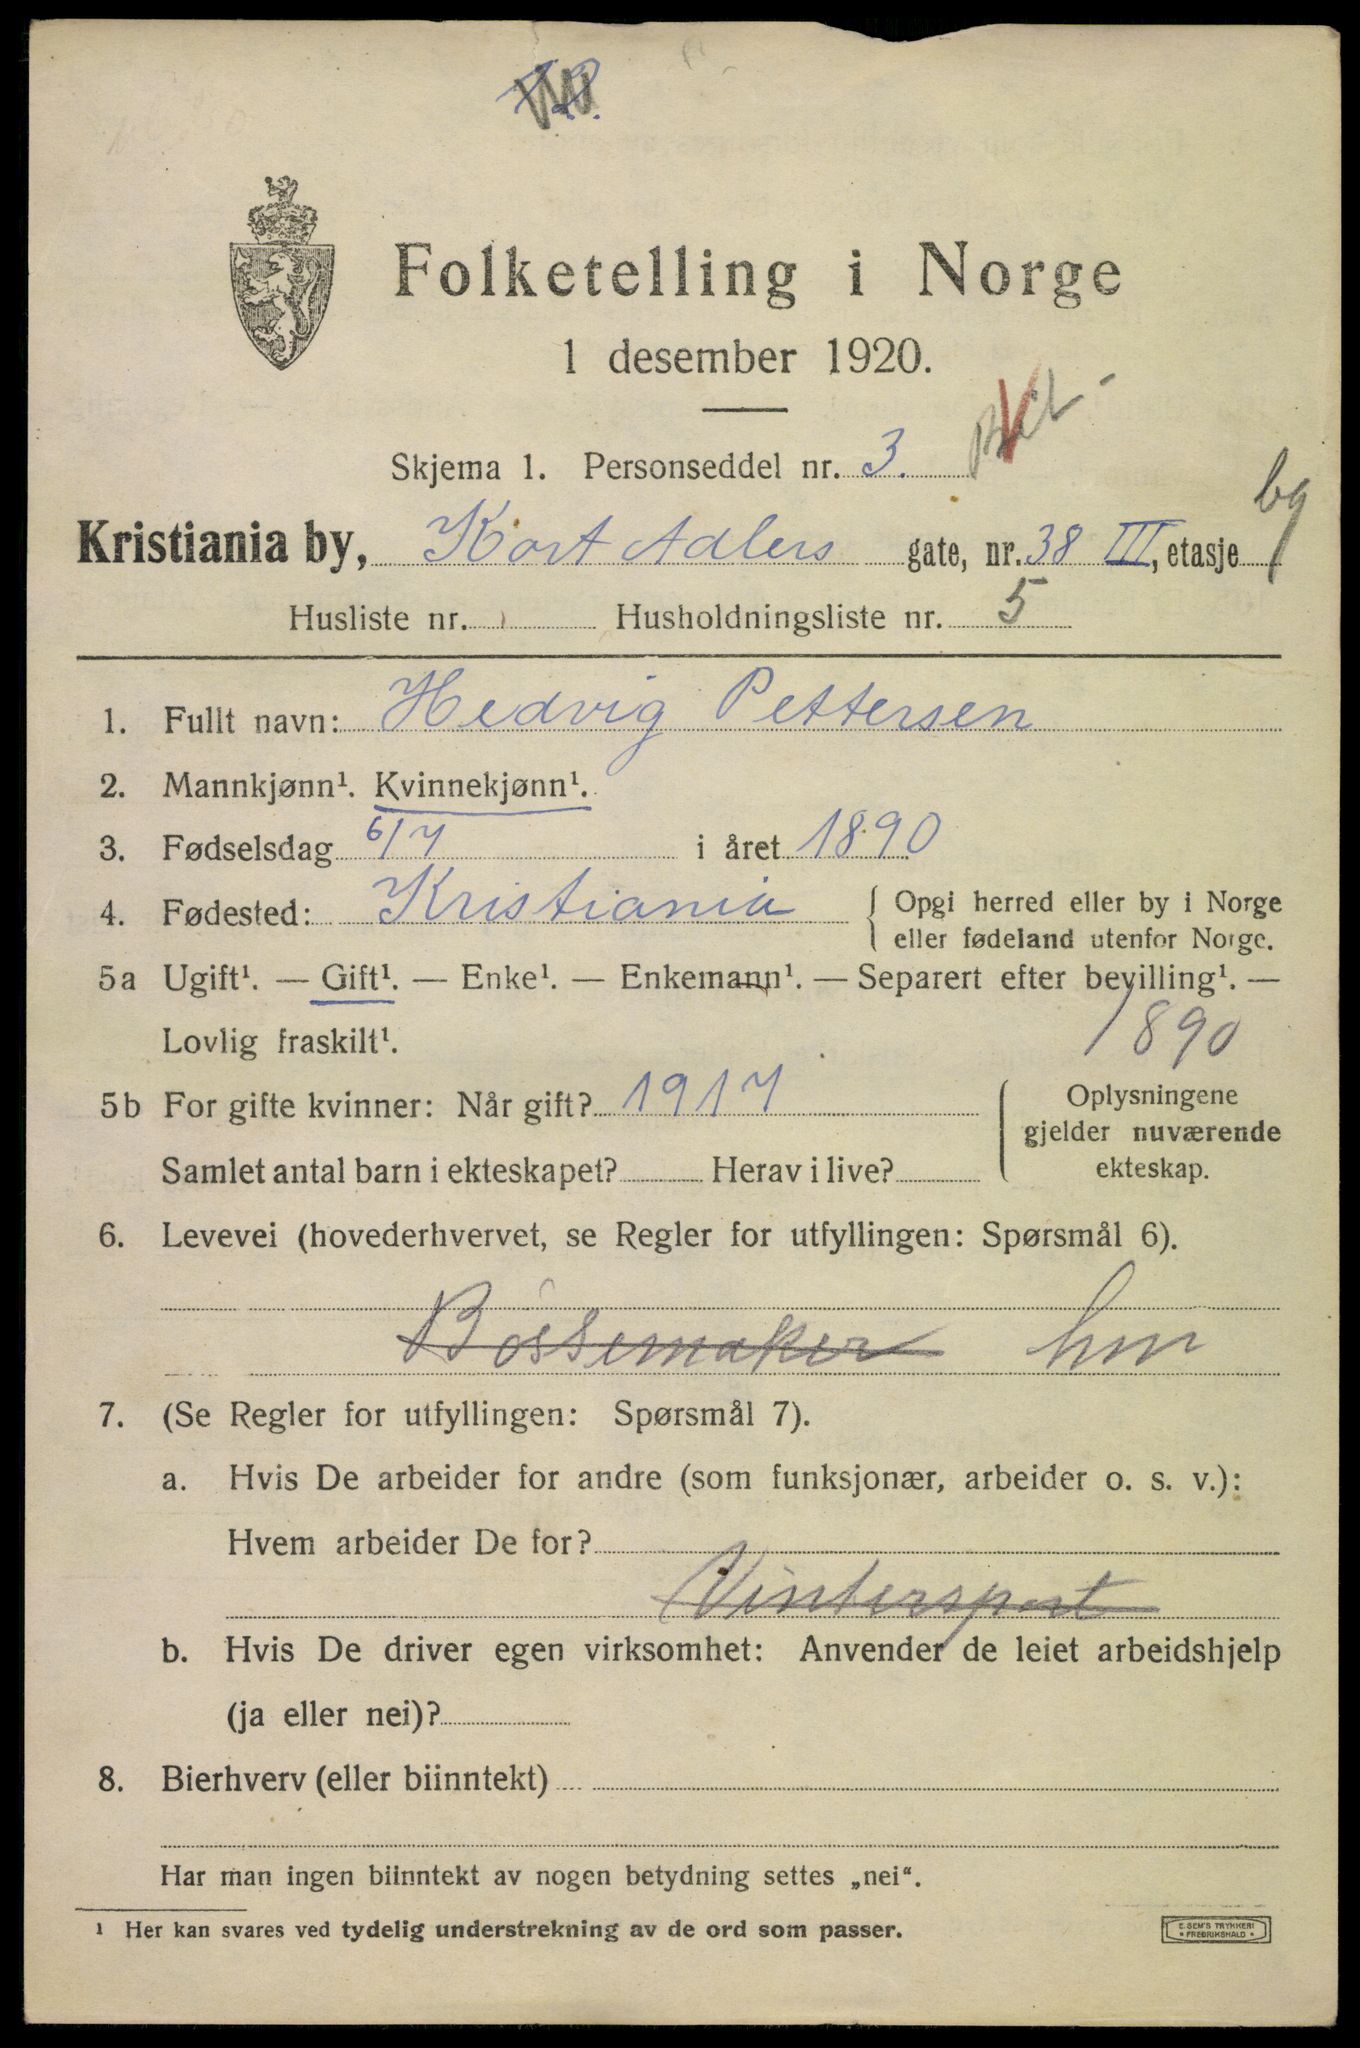 Folketelling i Norge
1 desember 1920.
Skjema 1. Personseddel nr. 3.
bg
Kristiania by, Kort Adlers gate, nr. 38 III, etasje
Husliste nr. Husholdningsliste nr. 5
1. Fullt navn: Hedvig Pettersen
2. Mannkjønn¹. Kvinnekjønn¹.
3. Fødselsdag 6/7 i året 1890
4. Fødested: Kristiania { Opgi herred eller by i Norge
eller fødeland utenfor Norge.
5a Ugift¹. — Gift¹. — Enke¹. — Enkemann¹. — Separert efter bevilling¹. —
Lovlig fraskilt¹. 1890
5b For gifte kvinner: Når gift? 1917
Samlet antal barn i ekteskapet? Herav i live?
{ Oplysningene
gjelder nuværende
ekteskap.
6. Levevei (hovederhvervet, se Regler for utfyllingen: Spørsmål 6).
Bössemaker hm
7. (Se Regler for utfyllingen: Spørsmål 7).
a. Hvis De arbeider for andre (som funksjonær, arbeider o. s. v.):
Hvem arbeider De for?
Vintersport
b. Hvis De driver egen virksomhet: Anvender de leiet arbeidshjelp
(ja eller nei)?
8. Bierhverv (eller biinntekt)
Har man ingen biinntekt av nogen betydning settes „nei“.
¹ Her kan svares ved tydelig understrekning av de ord som passer.
E. SEM'S TRYKKERI
* FREDRIKSHALD *